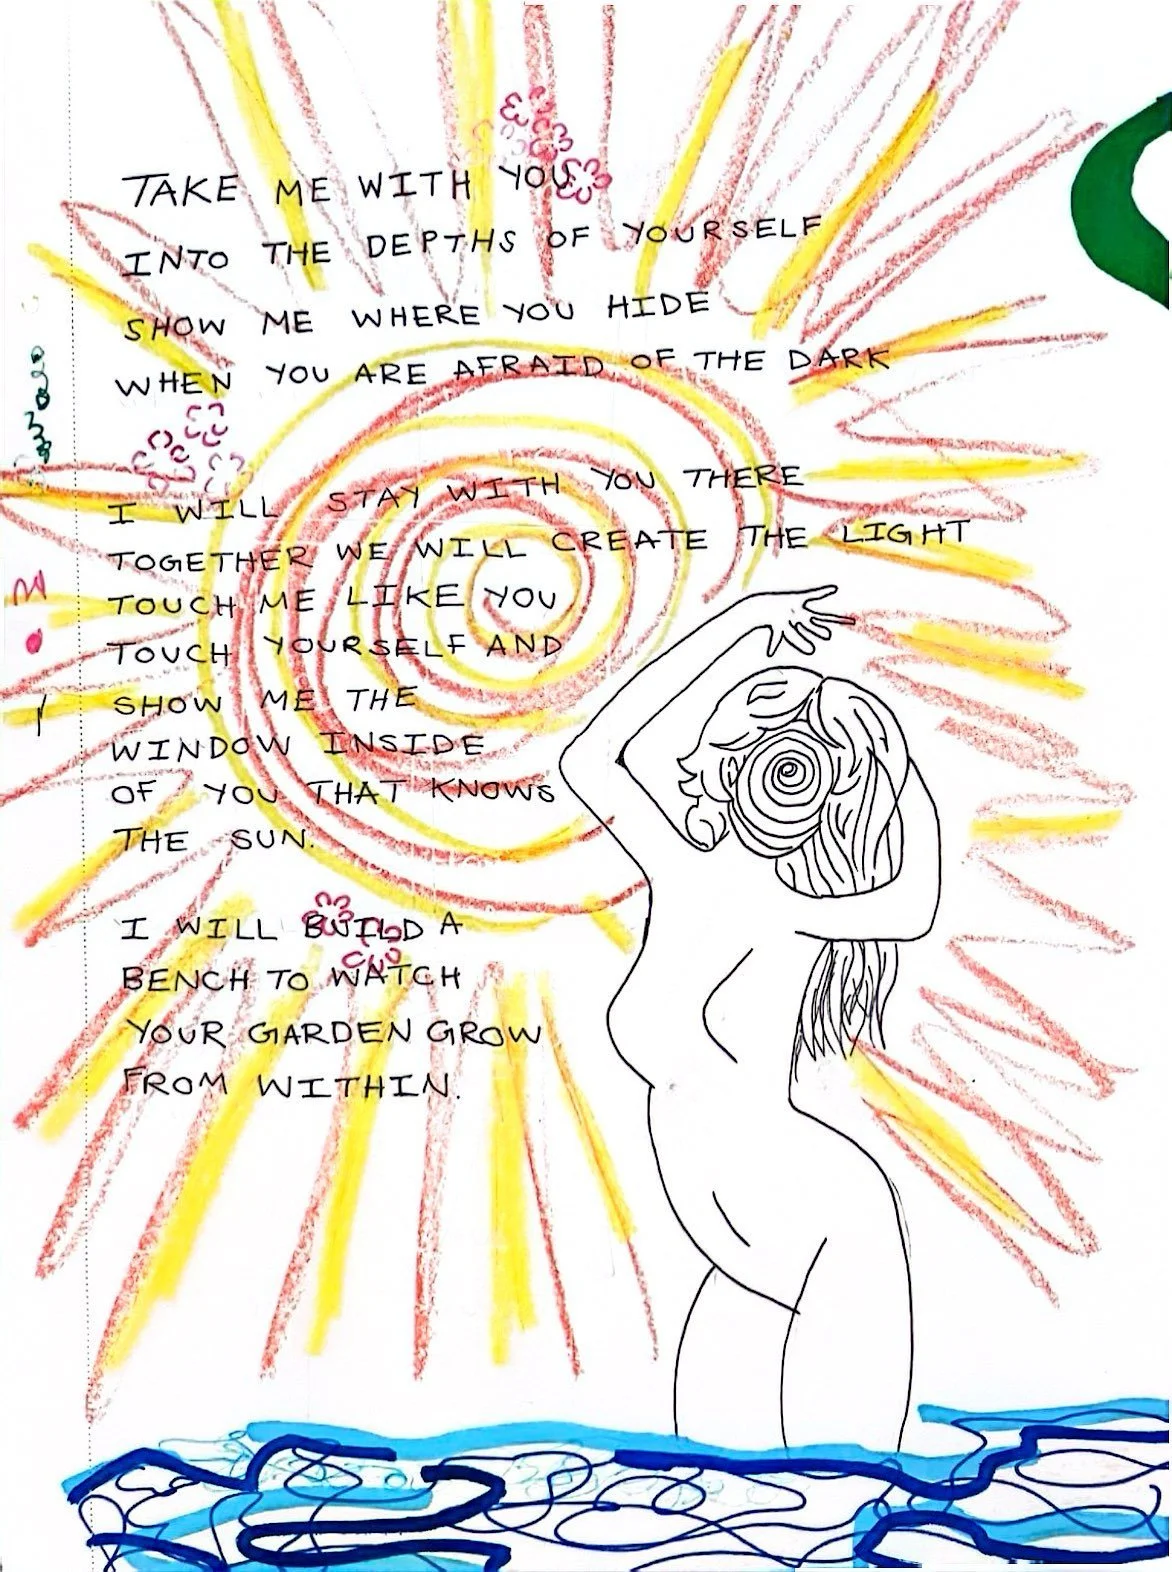 TAKE ME WITH YOU
INTO THE DEPTHS OF YOURSELF
SHOW ME WHERE YOU HIDE
WHEN YOU ARE AFRAID OF THE DARK
I WILL STAY WITH YOU THERE
TOGETHER WE WILL CREATE THE LIGHT
TOUCH ME LIKE YOU
TOUCH YOURSELF AND
SHOW ME THE
WINDOW INSIDE
OF YOU THAT KNOWS
THE SUN.
I WILL BUILD A
BENCH TO WATCH
YOUR GARDEN GROW
FROM WITHIN.